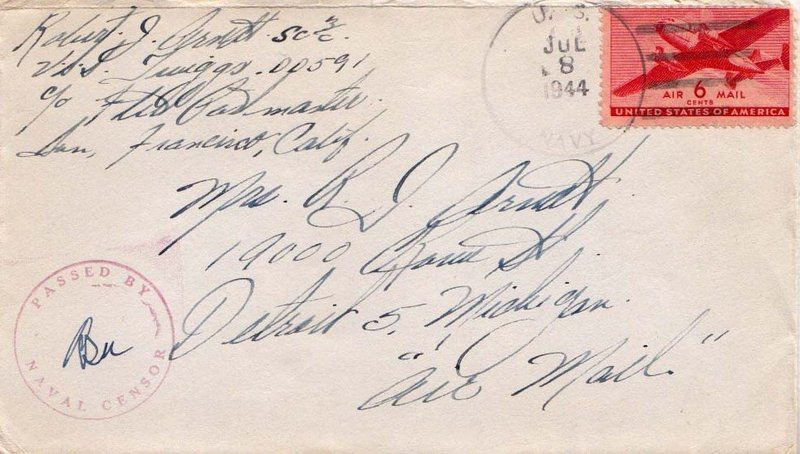 Robert J. Arndt SC 3/c.
U.S.S. Twiggs. DD591
c/o Fleet Postmaster
San, Francisco, Calif.
U. S.
JUL
8
1944
NAVY
AIR 6 MAIL
CENTS
UNITED STATES OF AMERICA
Mrs. R. J. Arndt
19000 St.
Detroit 5, Michigan.
"Air Mail."
PASSED BY
Bu
NAVAL CENSOR